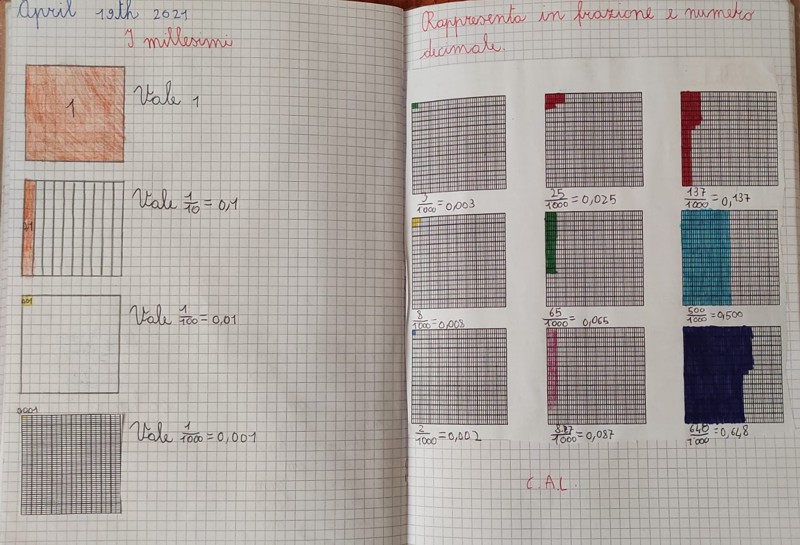 April 19th 2021
I millesimi
1
Vale 1
0,1
Vale 1/10 = 0,1
0,01
Vale 1/100 = 0,01
0,001
Vale 1/1000 = 0,001
Rappresenta in frazione e numero
decimale.
3/1000 = 0,003
25/1000 = 0,025
137/1000 = 0,137
8/1000 = 0,008
65/1000 = 0,065
500/1000 = 0,500
2/1000 = 0,002
87/1000 = 0,087
648/1000 = 0,648
C.A.L.